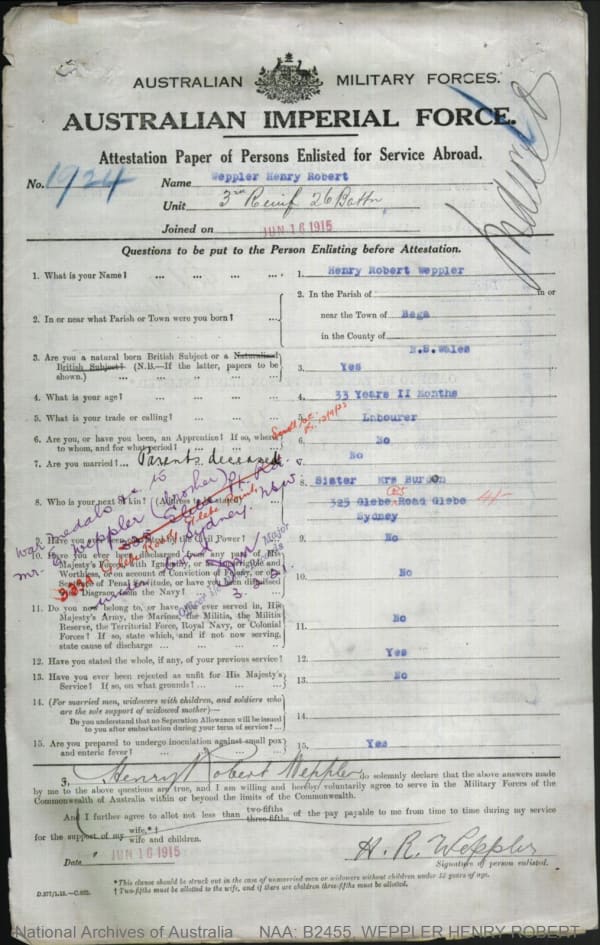 AUSTRALIAN MILITARY FORCES.
AUSTRALIAN IMPERIAL FORCE.
Attestation Paper of Persons Enlisted for Service Abroad.
No. 1924 Name Weppler Henry Robert
Unit 3rd Reinf 26 Battn
Joined on JUN 16 1915
Questions to be put to the Person Enlisting before Attestation.
1. What is your Name? ... ... ... ... 1. Henry Robert Weppler
2. In or near what Parish or Town were you born? ... 2. In the Parish of in or
near the Town of Bega
in the County of
N.S.Wales
3. Are you a natural born British Subject or a Naturalized
British Subject? (N.B.—If the latter, papers to be
shown.) ... ... ... ... 3. Yes
4. What is your age? ... ... ... ... 4. 33 Years II Months
5. What is your trade or calling? ... ... ... 5. Labourer
6. Are you, or have you been, an Apprentice? If so, where,
to whom, and for what period? ... ... 6. No
7. Are you married? ... Parents deceased 7. No
8. Who is your next of kin? (Address to be stated) 8. Sister Mrs Burdon
325 Glebe Road Glebe 4/-
Sydney
War medals &c to
Mr. E. Weppler (brother)
Sydney. NSW.
339A Glebe Road, Glebe Point,
Major
3.2.21.
9. Have you ever been convicted by the Civil Power? 9. No
10. Have you ever been discharged from any part of His
Majesty's Forces, with Ignominy, or as Incorrigible and
Worthless, or on account of Conviction of Felony, or of a
Sentence of Penal Servitude, or have you been dismissed
with Disgrace from the Navy? 10. No
11. Do you now belong to, or have you ever served in, His
Majesty's Army, the Marines, the Militia, the Militia
Reserve, the Territorial Force, Royal Navy, or Colonial
Forces? If so, state which, and if not now serving,
state cause of discharge ... ... ... 11. No
12. Have you stated the whole, if any, of your previous service? 12. Yes
13. Have you ever been rejected as unfit for His Majesty's
Service? If so, on what grounds? ... ... 13. No
14. (For married men, widowers with children, and soldiers who
are the sole support of widowed mother)—
Do you understand that no Separation Allowance will be issued
to you after embarkation during your term of service? ... 14.
15. Are you prepared to undergo inoculation against small pox
and enteric fever? ... ... ... ... 15. Yes
I, Henry Robert Weppler do solemnly declare that the above answers made
by me to the above questions are true, and I am willing and hereby voluntarily agree to serve in the Military Forces of the
Commonwealth of Australia within or beyond the limits of the Commonwealth.
And I further agree to allot not less than two-fifths three-fifths of the pay payable to me from time to time during my service
for the support of my wife,*† wife and children.
Date JUN 16 1915 H. R. Weppler
Signature of person enlisted.
*This clause should be struck out in the case of unmarried men or widowers without children under 18 years of age.
† Two-fifths must be allotted to the wife, and if there are children three-fifths must be allotted.
National Archives of Australia NAA: B2455, WEPPLER HENRY ROBERT